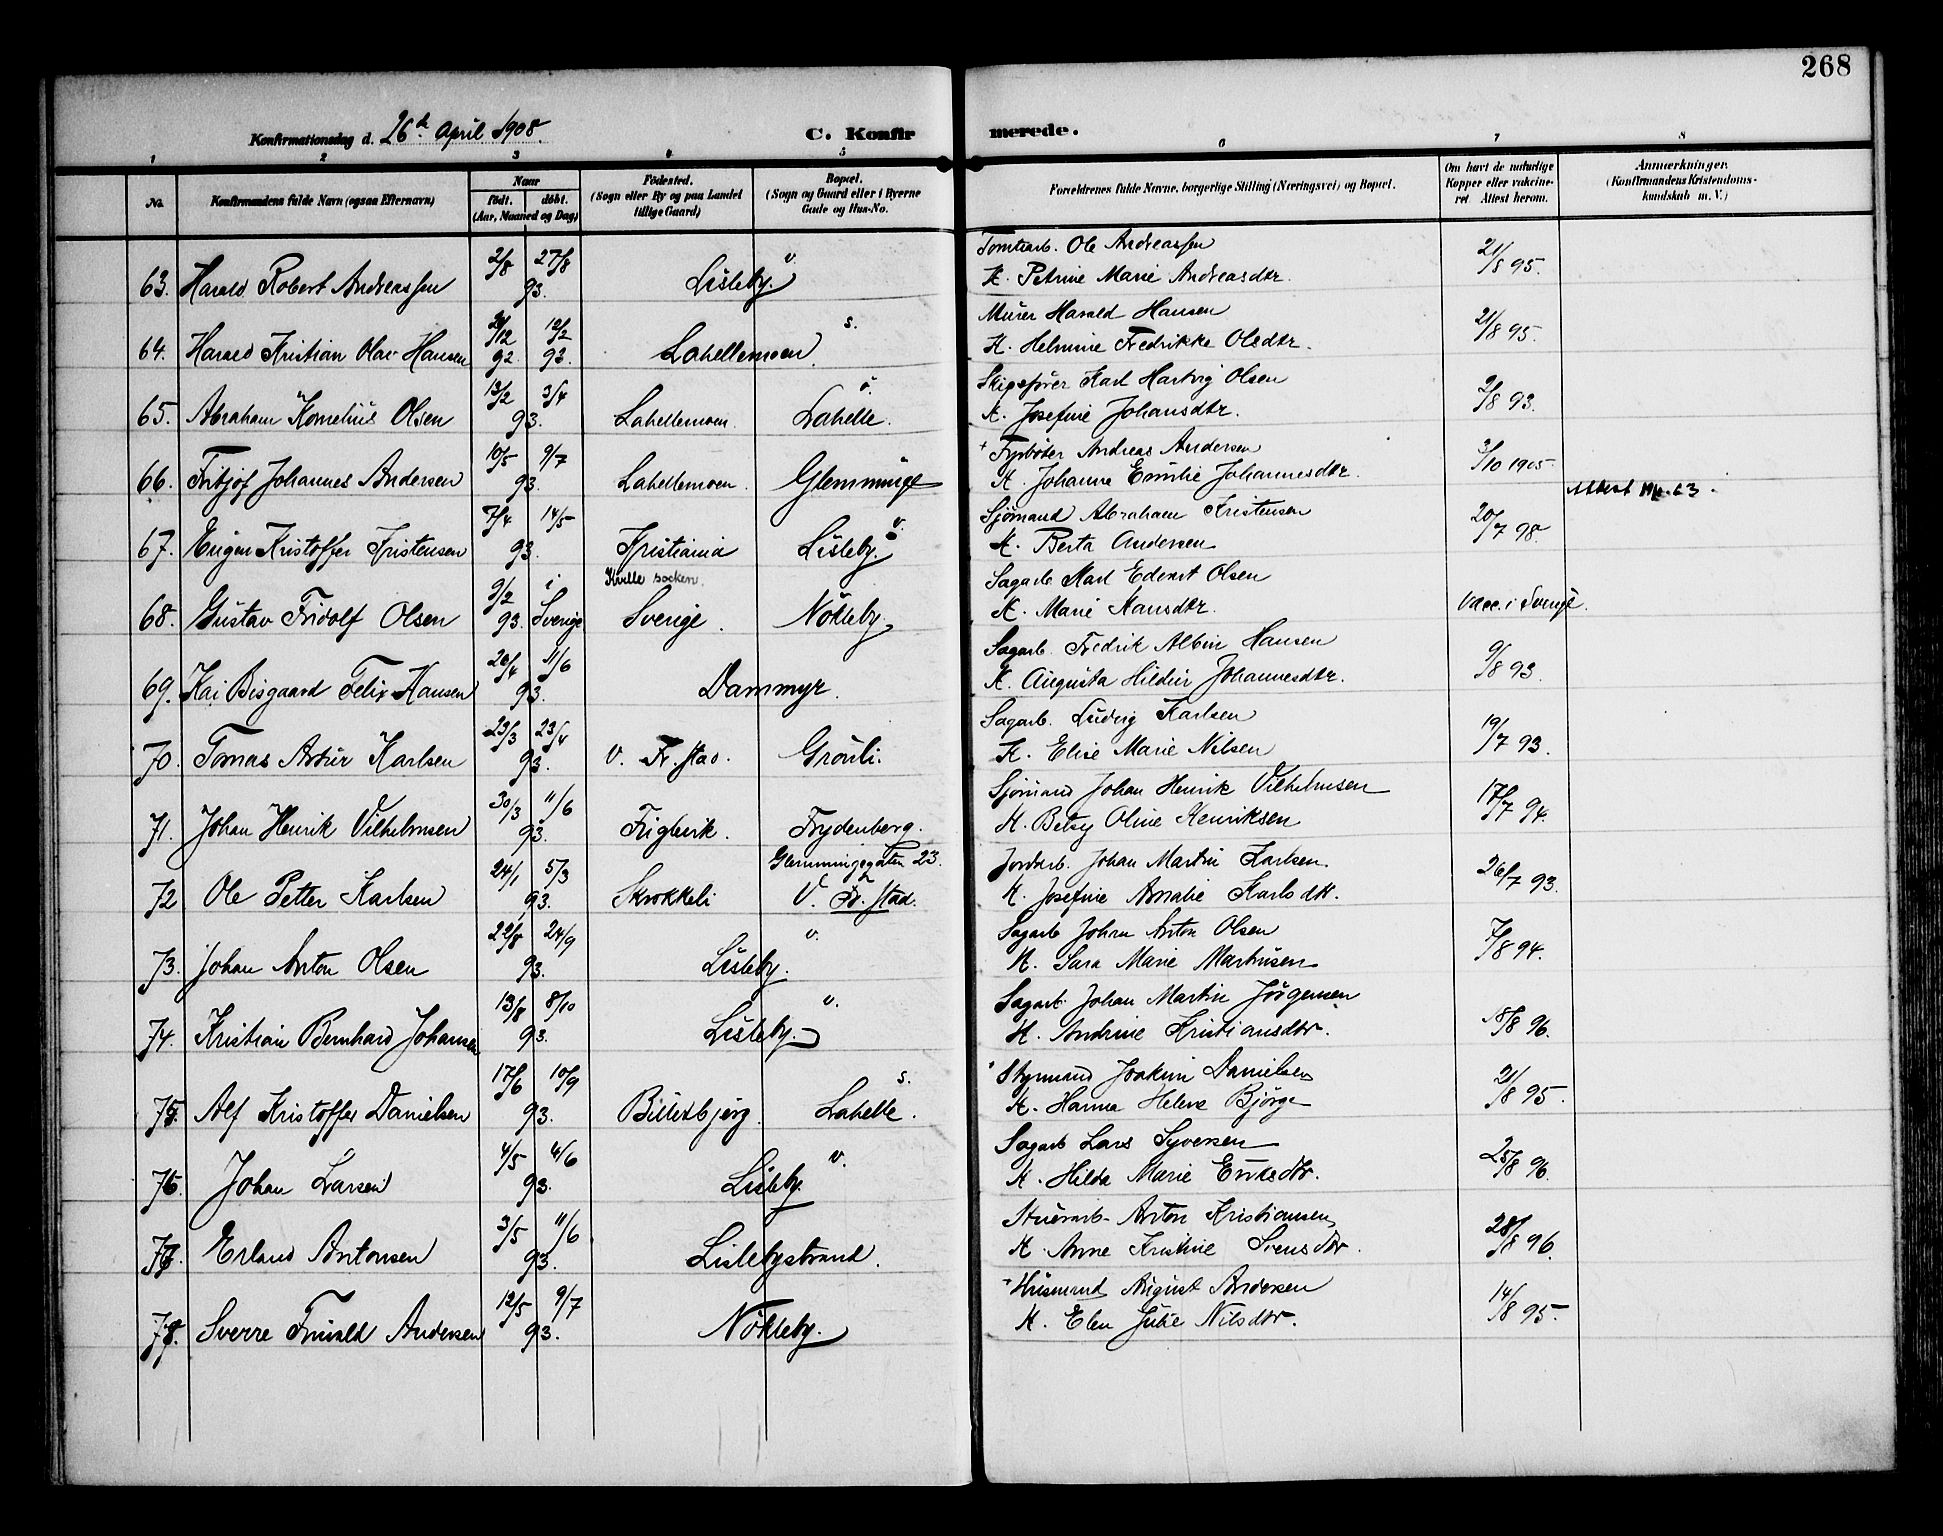 268
Konfirmationsdag d. 26de April 1908.
C. Konfir merede.
1 2 3 4 5 6 7 8
No. Konfirmandens fulde Navn (ogsaa Efternavn) Naar født. døbt. (Aar, Maaned og Dag) Fødested. (Sogn eller By og paa Landet tillige Gaard) Bopæl. (Sogn og Gaard eller i Byerne Gade og Hus-No. Forældrenes fulde Navne, borgerlige Stilling (Næringsvei) og Bopæl. Om havt de naturlige Kopper eller vakcineret. Attest herom. Anmærkninger. (Konfirmandens Kristendomskundskab m. V.)
63. Harald Robert Andreassen 2/8 27/8 93. Lisleby. v. Tomtearb. Ole Andreassen 21/8 95.
K. Petrine Marie Andreasdtr.
64. Harald Kristian Olav Hansen 92 12/2 93. Lahellemoen. s. Murer Harald Hansen 21/8 95.
K. Helmine Fredrikke Olsdtr.
65. Abraham Kornelius Olsen 13/2 3/4 93. Lahellemoen. Lahelle. Skipsfører Karl Hartvig Olsen 2/8 93.
K. Josefine Johansdtr.
66. Fritjof Johannes Andersen 10/5 9/7 93. Lahellemoen. Glemminge + Fyrbøter Andreas Andersen 3/10 1905.
K. Johanne Emilie Johannesdtr. Attest No. 63.
67. Eugen Kristoffer Kristensen 7/4 14/5 93. Kristiania Lisleby. v. Sjømand Abraham Kristensen 20/7 98.
K. Berta Andersen
68. Gustav Fridolf Olsen 9/2 93. i Sverige Kville socken. Sverige. Nökleby. Sagarb. Karl Edvart Olsen Vacc. i Sverige.
K. Marie Hansdtr.
69. Kai Bisgaard Felix Hansen 26/4 11/6 93. Dammyr. Sagarb. Fredrik Albin Hansen 9/8 93.
K. Augusta Hildur Johannesdtr.
70. Tomas Artur Karlsen 23/3 23/4 93. V. Fr.stad. Grönli. Sagarb. Ludvig Karlsen 19/7 93.
K. Elise Marie Nilsen
71. Johan Henrik Vilhelmsen 30/3 11/6 93. Fuglevik. Frydenberg. Sjømand Johan Henrik Vilhelmsen 17/7 94.
K. Betsy Oline Henriksen
72 Ole Petter Karlsen 24/1 5/3 93. Skrokkeli Glemmingegaten 23. V. Fr.stad. Jordarb. Johan Martin Karlsen. 26/7 93.
K. Josefine Amalie Karlsdtr.
73. Johan Anton Olsen 22/8 24/9 93. Lisleby. v. Sagarb Johan Anton Olsen 7/8 94.
K. Sara Marie Martinsen
74. Kristian Bernhard Johansen 13/8 8/10 93. Lisleby. v. Sagarb. Johan Martin Jörgensen 18/8 96.
K. Andrine Kristiansdtr.
75. Alf Kristoffer Danielsen 17/6 10/9 93. Bilitsbjerg. Lahelle. s. Styrmand Joakim Danielsen 21/8 95.
K. Hanna Helene Bjørge
76. Johan Larsen 4/5 4/6 93. Lisleby. v. Sagarb Lars Syversen 25/8 96.
K. Hilda Marie Eriksdtr.
77. Erland Antonsen 3/5 11/6 93. Lislebystrand. Stuerarb. Anton Kristiansen 28/8 96.
K. Anne Kristine Svensdtr.
78. Sverre Andersen 12/5 9/7 93. Nökleby. + Husmand August Andersen 14/8 95.
K. Elen Julie Nilsdtr.